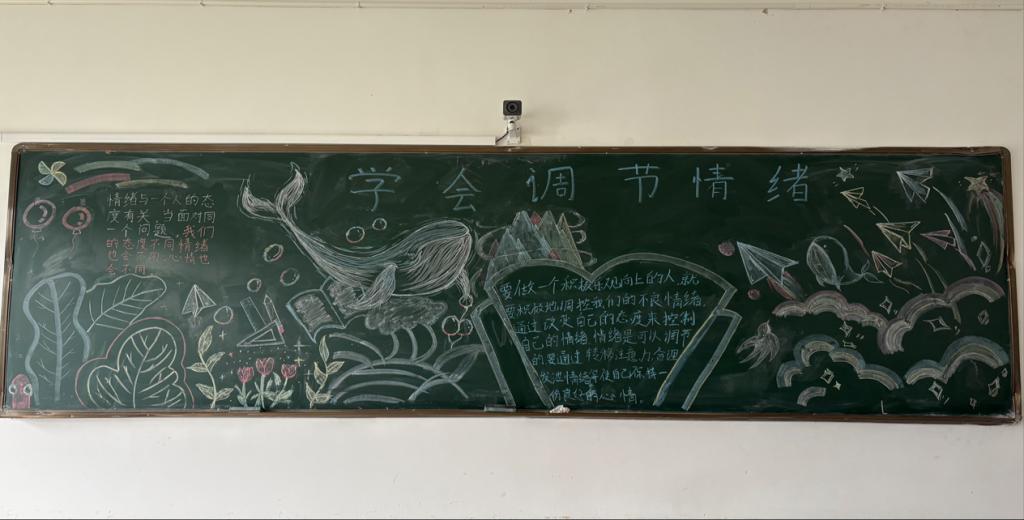 学会调节情绪
情绪与一个人的态
度有关,当面对同
一个问题,我们
的态度不同情绪
也会不同,心情也
会不同
要做一个积极乐观向上的人,就
要积极地调控我们的不良情绪,
通过改变自己的态度来控制
自己的情绪 情绪是可以调节
的要通过 转移注意力合理
发泄情绪等使自己保持一
个良好的心情.